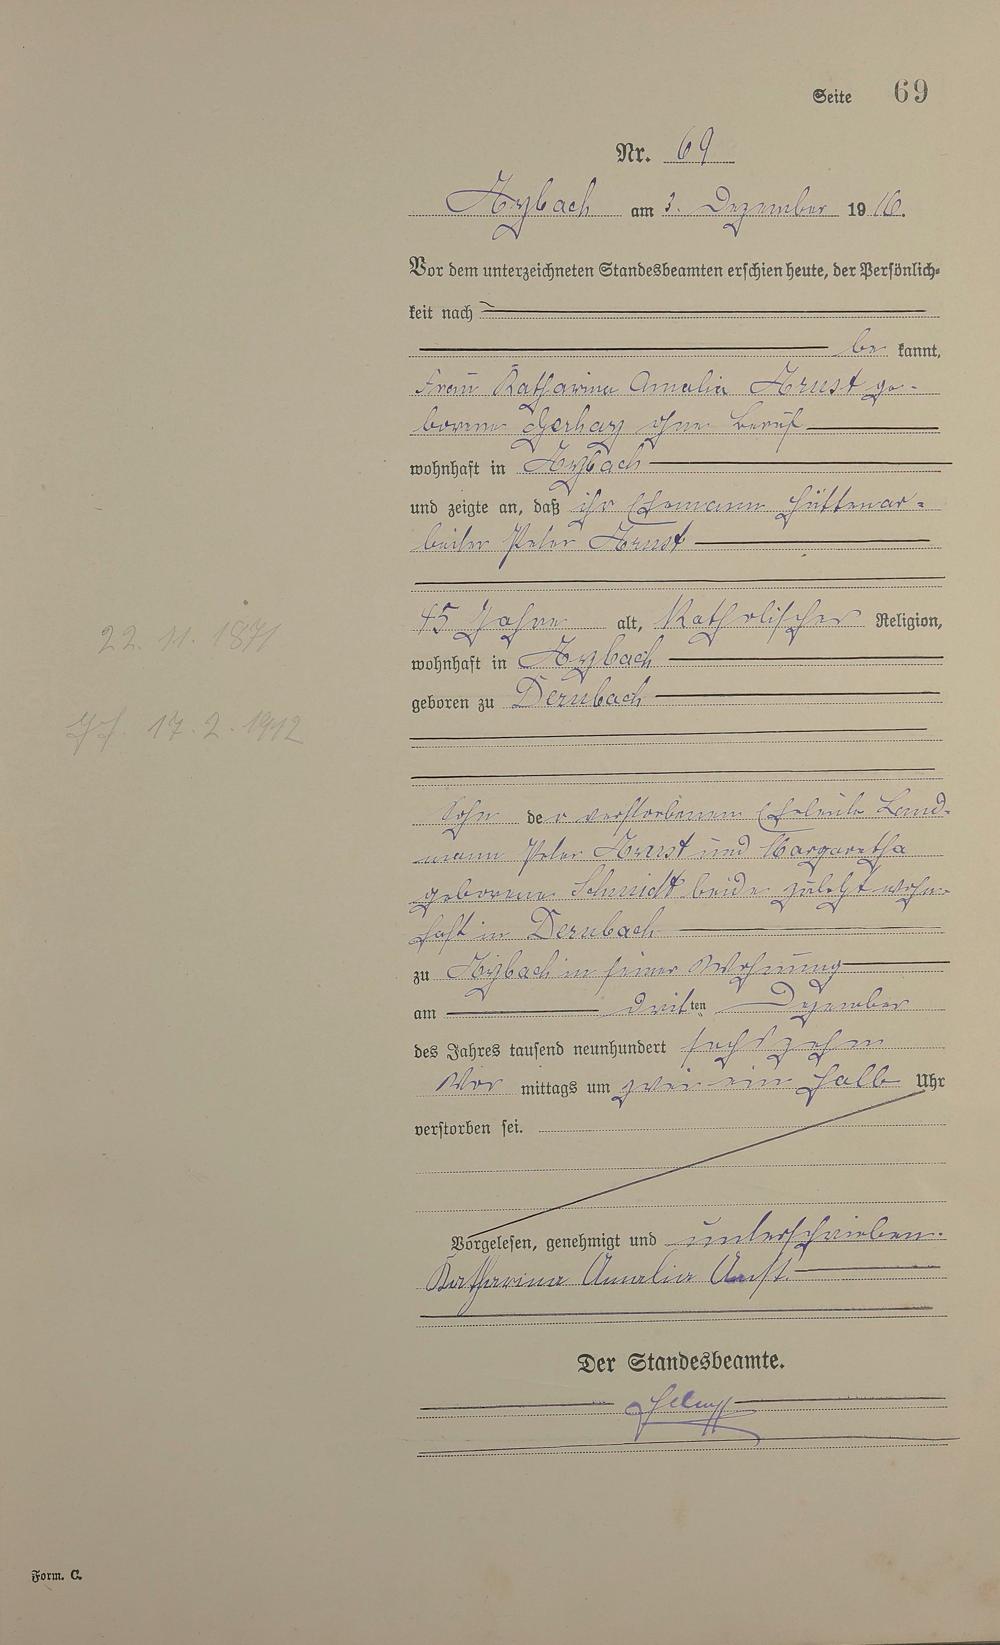 Seite 69
Nr. 69
am 3. Dezember 1916.
Vor dem unterzeichneten Standesbeamten erschien heute, der Persönlich-
keit nach
be kannt,
Frau Katharina Amalia Arnst ge-
borene Gerhaz ohne Beruf
wohnhaft in
und zeigte an, daß ihr Ehemann Hüttenar-
beiter Peter Arnst
45 Jahre alt, Katholischer Religion,
22. 11. 1871
wohnhaft in
geboren zu Dernbach
17. 2. 1912
Sohn der verstorbenen Eheleute Land-
mann Peter Arnst und Margaretha
geborene Schmidt beide zuletzt wohn-
haft in Dernbach
zu in seiner Wohnung
am dritten Dezember
des Jahres tausend neunhundert sechszehn
Vor mittags um zwei ein halb Uhr
verstorben sei.
Vorgelesen, genehmigt und unterschrieben.
Katharina Amalia Arnst.
Der Standesbeamte.
Form. C.